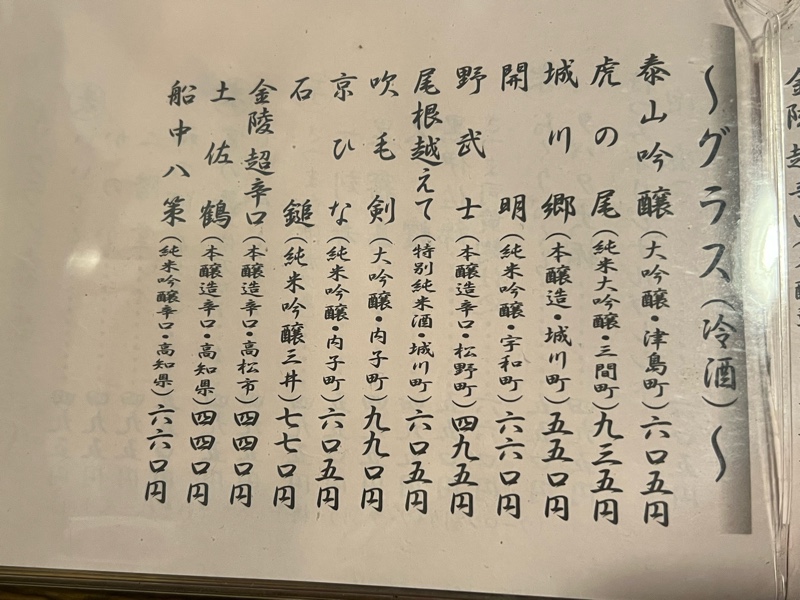 ～グラス（冷酒）～
泰山吟醸（大吟醸・津島町）六〇五円
虎の尾（純米大吟醸・三間町）九三五円
城川郷（本醸造・城川町）五五〇円
開明（純米吟醸・宇和町）六六〇円
野武士（本醸造辛口・松野町）四九五円
尾根越えて（特別純米酒・城川町）六〇五円
吹毛剣（大吟醸・内子町）九九〇円
京ひな（純米吟醸・内子町）六〇五円
石鎚（純米吟醸三井）七七〇円
金陵超辛口（本醸造辛口・高松市）四四〇円
土佐鶴（本醸造辛口・高知県）四四〇円
船中八策（純米吟醸辛口・高知県）六六〇円